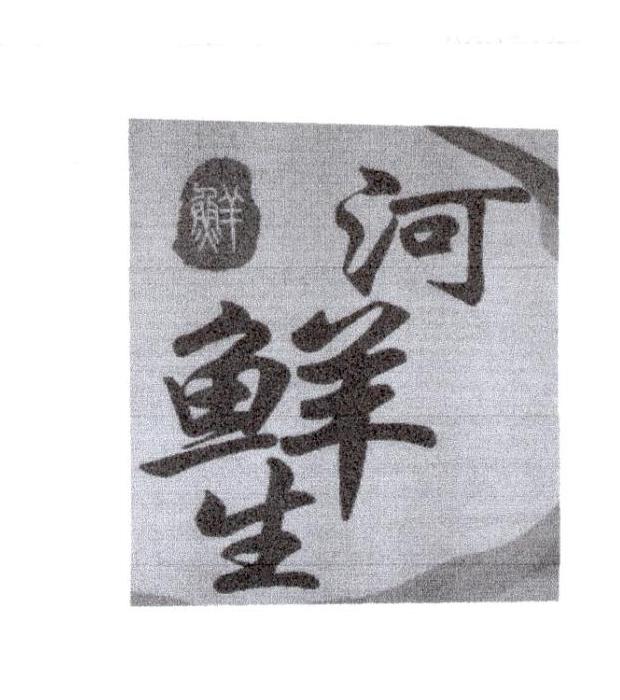 河
鲜
生
鮮